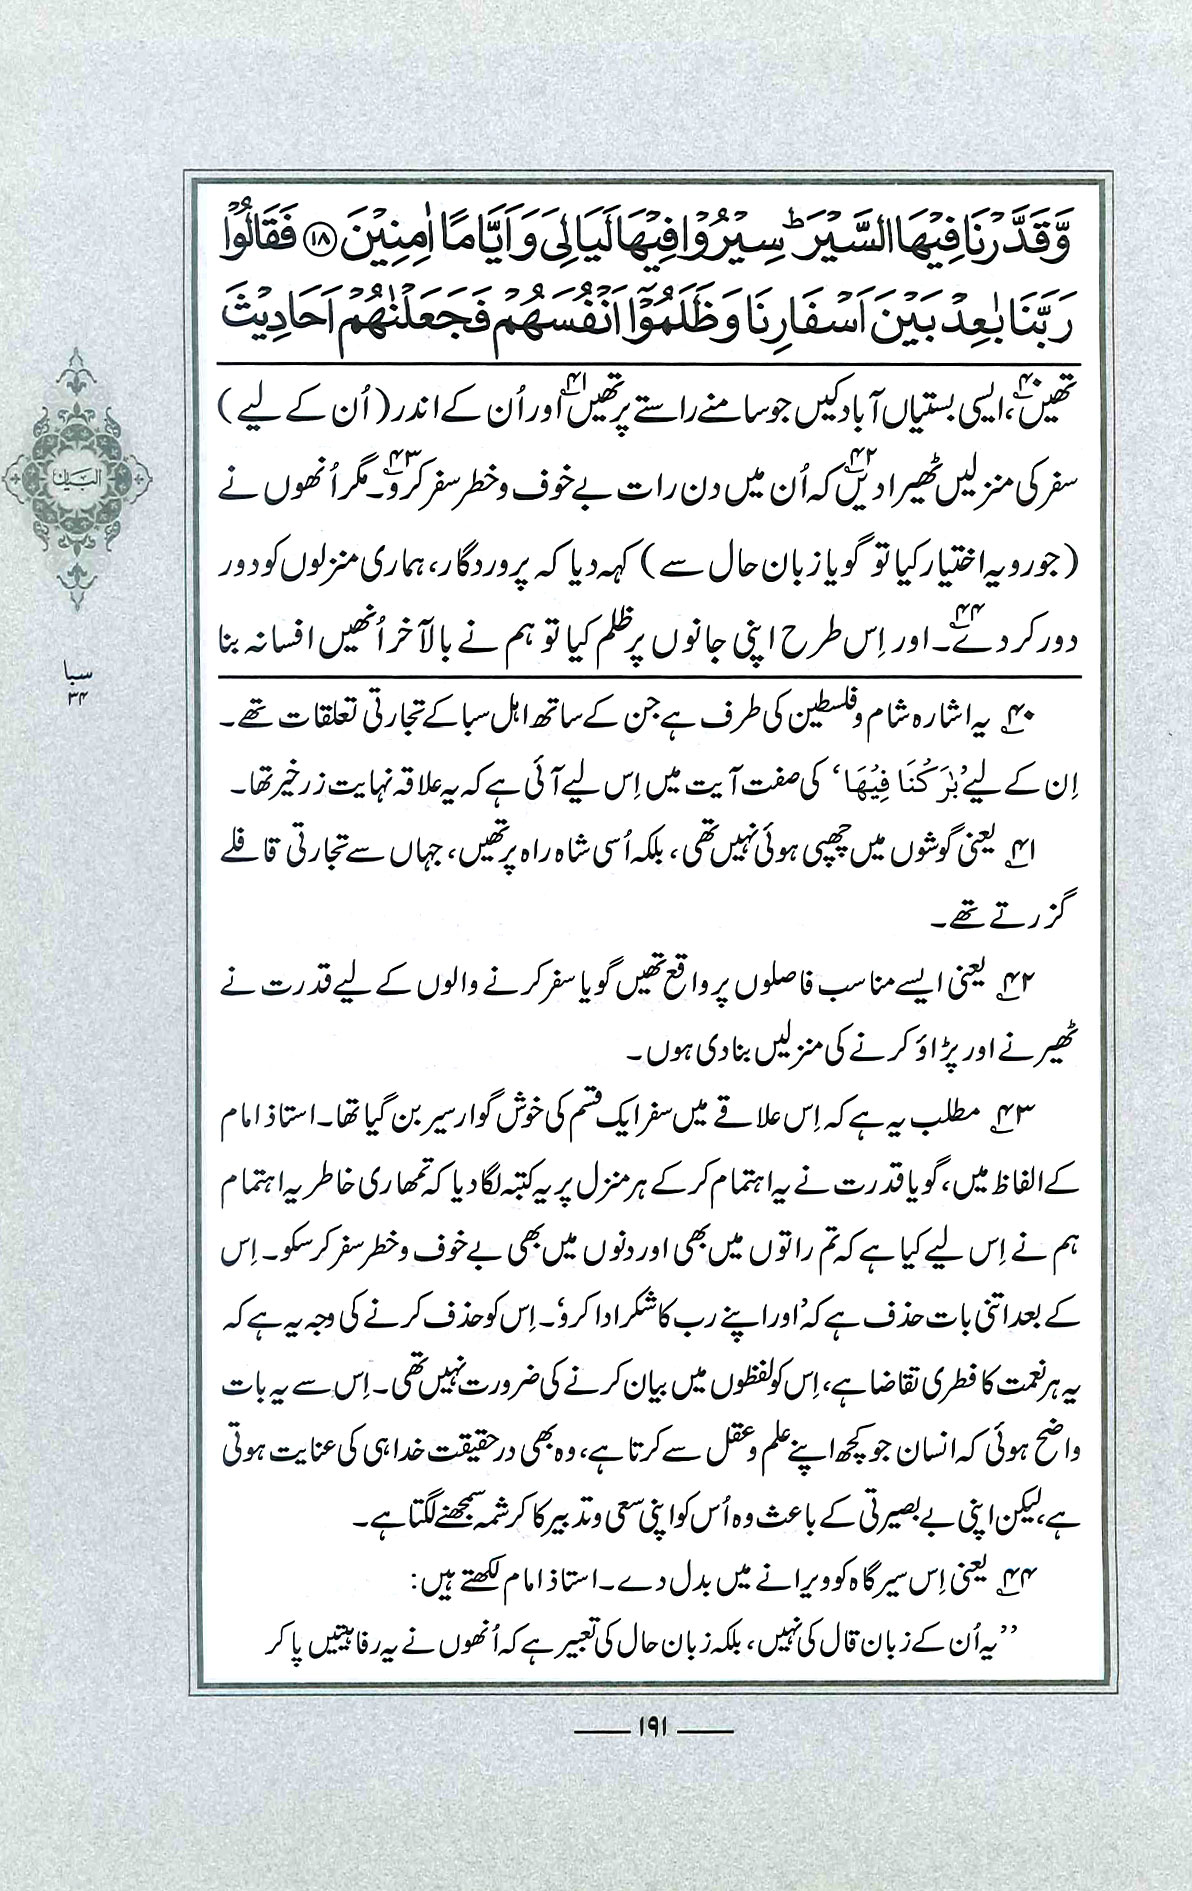 وَّقَدَّرْنَا فِيْهَا السَّيْرَ ؕ سِيْرُوْا فِيْهَا لَيَالِيَ وَ اَيَّامًا اٰمِنِيْنَ ﴿۱۸﴾ فَقَالُوْا
رَبَّنَا بٰعِدْ بَيْنَ اَسْفَارِنَا وَ ظَلَمُوْٓا اَنْفُسَهُمْ فَجَعَلْنٰهُمْ اَحَادِيْثَ
تھیں۴۰، ایسی بستیاں آباد کیں جو سامنے راستے پر تھیں۴۱ اور اُن کے اندر (اُن کے لیے)
سفر کی منزلیں ٹھیرا دیں۴۲ کہ اُن میں دن رات بے خوف و خطر سفر کرو۴۳۔ مگر اُنھوں نے
(جو رویہ اختیار کیا تو گویا زبان حال سے) کہہ دیا کہ پروردگار، ہماری منزلوں کو دور
دور کر دے۴۴۔ اور اِس طرح اپنی جانوں پر ظلم کیا تو ہم نے بالآخر اُنھیں افسانہ بنا
البیان
سبا
۳۴
۴۰؎ یہ اشارہ شام و فلسطین کی طرف ہے جن کے ساتھ اہل سبا کے تجارتی تعلقات تھے۔
اِن کے لیے ’بٰرَكْنَا فِيْهَا‘ کی صفت آیت میں اِس لیے آئی ہے کہ یہ علاقہ نہایت زرخیز تھا۔
۴۱؎ یعنی گوشوں میں چھپی ہوئی نہیں تھی، بلکہ اُسی شاہ راہ پر تھیں، جہاں سے تجارتی قافلے
گزرتے تھے۔
۴۲؎ یعنی ایسے مناسب فاصلوں پر واقع تھیں گویا سفر کرنے والوں کے لیے قدرت نے
ٹھیرنے اور پڑاؤ کرنے کی منزلیں بنا دی ہوں۔
۴۳؎ مطلب یہ ہے کہ اِس علاقے میں سفر ایک قسم کی خوش گوار سیر بن گیا تھا۔ استاذ امام
کے الفاظ میں، گویا قدرت نے یہ اہتمام کر کے ہر منزل پر یہ کتبہ لگا دیا کہ تمھاری خاطر یہ اہتمام
ہم نے اِس لیے کیا ہے کہ تم راتوں میں بھی اور دنوں میں بھی بے خوف و خطر سفر کر سکو۔ اِس
کے بعد اتنی بات حذف ہے کہ ’اور اپنے رب کا شکر ادا کرو‘۔ اِس کو حذف کرنے کی وجہ یہ ہے کہ
یہ ہر نعمت کا فطری تقاضا ہے، اِس کو لفظوں میں بیان کرنے کی ضرورت نہیں تھی۔ اِس سے یہ بات
واضح ہوئی کہ انسان جو کچھ اپنے علم و عقل سے کرتا ہے، وہ بھی درحقیقت خدا ہی کی عنایت ہوتی
ہے، لیکن اپنی بے بصیرتی کے باعث وہ اُس کو اپنی سعی و تدبیر کا کرشمہ سمجھنے لگتا ہے۔
۴۴؎ یعنی اِس سیر گاہ کو ویرانے میں بدل دے۔ استاذ امام لکھتے ہیں:
’’یہ اُن کے زبان قال کی نہیں، بلکہ زبان حال کی تعبیر ہے کہ اُنھوں نے یہ رفاہیتیں پا کر
۱۹۱